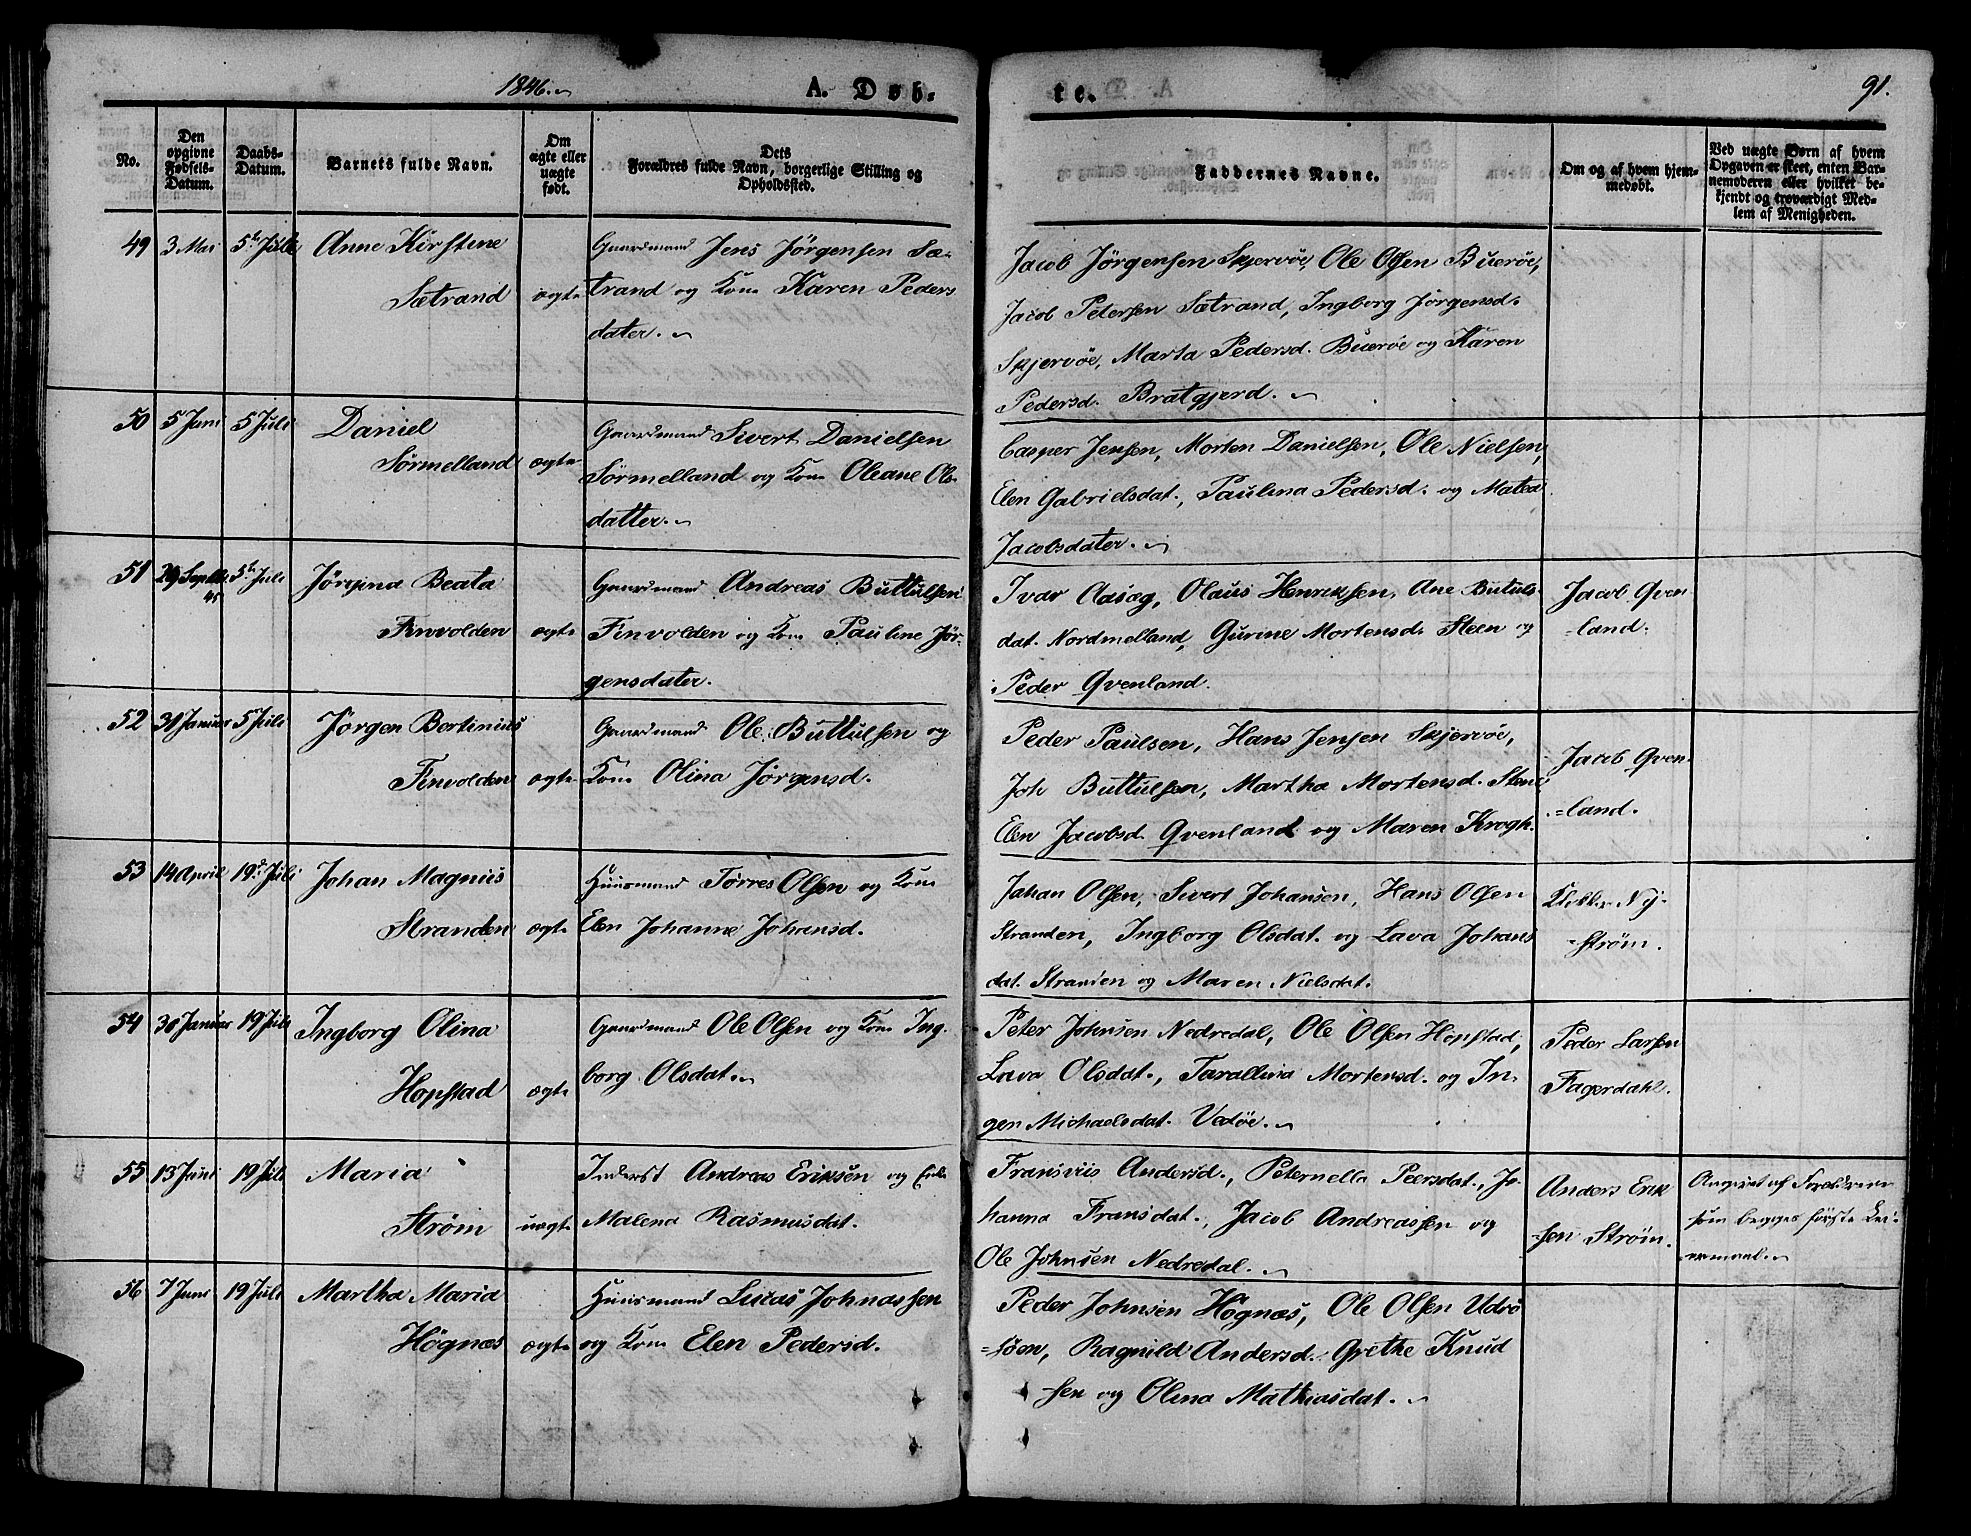 1846. A. Døb-
te. 91.
No.
Den opgivne Fødsels-Datum.
Daabs-Datum.
Barnets fulde Navn.
Om ægte eller uægte født.
Dets Forældres fulde Navn, borgerlige Stilling og Opholdssted.
Faddernes Navne.
Om og af hvem hjem-
medøbt.
Ved uægte Børn af hvem
Opgaven er skeet, enten Bar-
nemoderen eller hvilket be-
kjendt og troværdigt Med-
lem af Menigheden.
49 3 Mai 5te Juli Anne Kirstine
Sætrand ægte
Gaardmand Jens Jörgensen Sæ-
trand og Kone Karen Peders
dater.
Jacob Jörgensen Skjervöe, Ole Olsen Bueröe,
Jacob Petersen Sætrand, Ingborg Jörgensd.
Skjervöe, Marta Pedersd. Bueröe og Karen
Pedersd. Bratgjerd.
50 5 Juni 5 Juli Daniel
Sörmelland ægte
Gaardmand Sivert Danielsen
Sörmelland og Kone Oleane Ols-
datter.
Casper Jensen, Morten Danielsen, Ole Nielsen,
Elen Gabrielsdat., Paulina Pedersd. og Matea
Jacobsdater.
51 29 Septbr. 45 5te Juli Jörgina Beata
Finvolden ægte
Gaardmand Andreas Buttulsen
Finvolden og Kone Pauline Jör-
gensdater.
Ivar Aasæg, Olaus Henriksen, Ane Butuls-
dat. Nordmelland, Gurine Mortensd. Steen og
Peder Qvenland.
Jacob Qven-
=land.
52 31 Januar 5 Juli Jörgen Bertinius
Finvolden ægte
Gaardmand Ole Buttulsen og
Kone Olina Jörgensd.
Peder Paulsen, Hans Jensen Skjervöe,
Joh Buttulsen, Martha Mortensd. Steen
Elen Jacobsd. Qvenland og Maren Krogh.
Jacob Qven-
=land.
53 14 April 19d. Juli Johan Magnus
Stranden ægte
Huusmand Törres Olsen og Kone
Elen Johanne Johansd.
Johan Olsen, Sivert Johansen, Hans Olsen
Stranden, Ingborg Olsdat. og Lava Johans
dat. Stranden og Maren Nielsdat.
Klokker Ny-
=ström.
54 30 Januar 19 Juli Ingborg Olina
Hopstad ægte
Gaardmand Ole Olsen og Kone Ing-
borg Olsdat.
Peter Johnsen Nedredal, Ole Olsen Hopstad,
Lava Olsdat., Tarallina Mortensd. og In-
gen Michaelsdat. Vedöe.
Peder Larsen
Fagerdahl.
55 13 Juni 19 Juli Maria
Ström uægte
Inderst Andreas Eriksen og
Malena Rasmusdat.
Andersd., Peternella Peersdat., Jo-
hanna Fransdat., Jacob Andreassen og
Ole Johnsen Nedredal.
Anders Erik
=sen Ström.
Angivet af Forældrene
som begges förste Lei-
ermaal.
56 7 Juni 19 Juli Martha Maria
Högnæs ægte
Huusmand Lucas Johnassen
og Kone Elen Pedersd.
Peder Johnsen Högnæs, Ole Olsen Udrö
=söen, Ragnild Andersd. Grethe Knud
sen og Olina Mathiasdat.